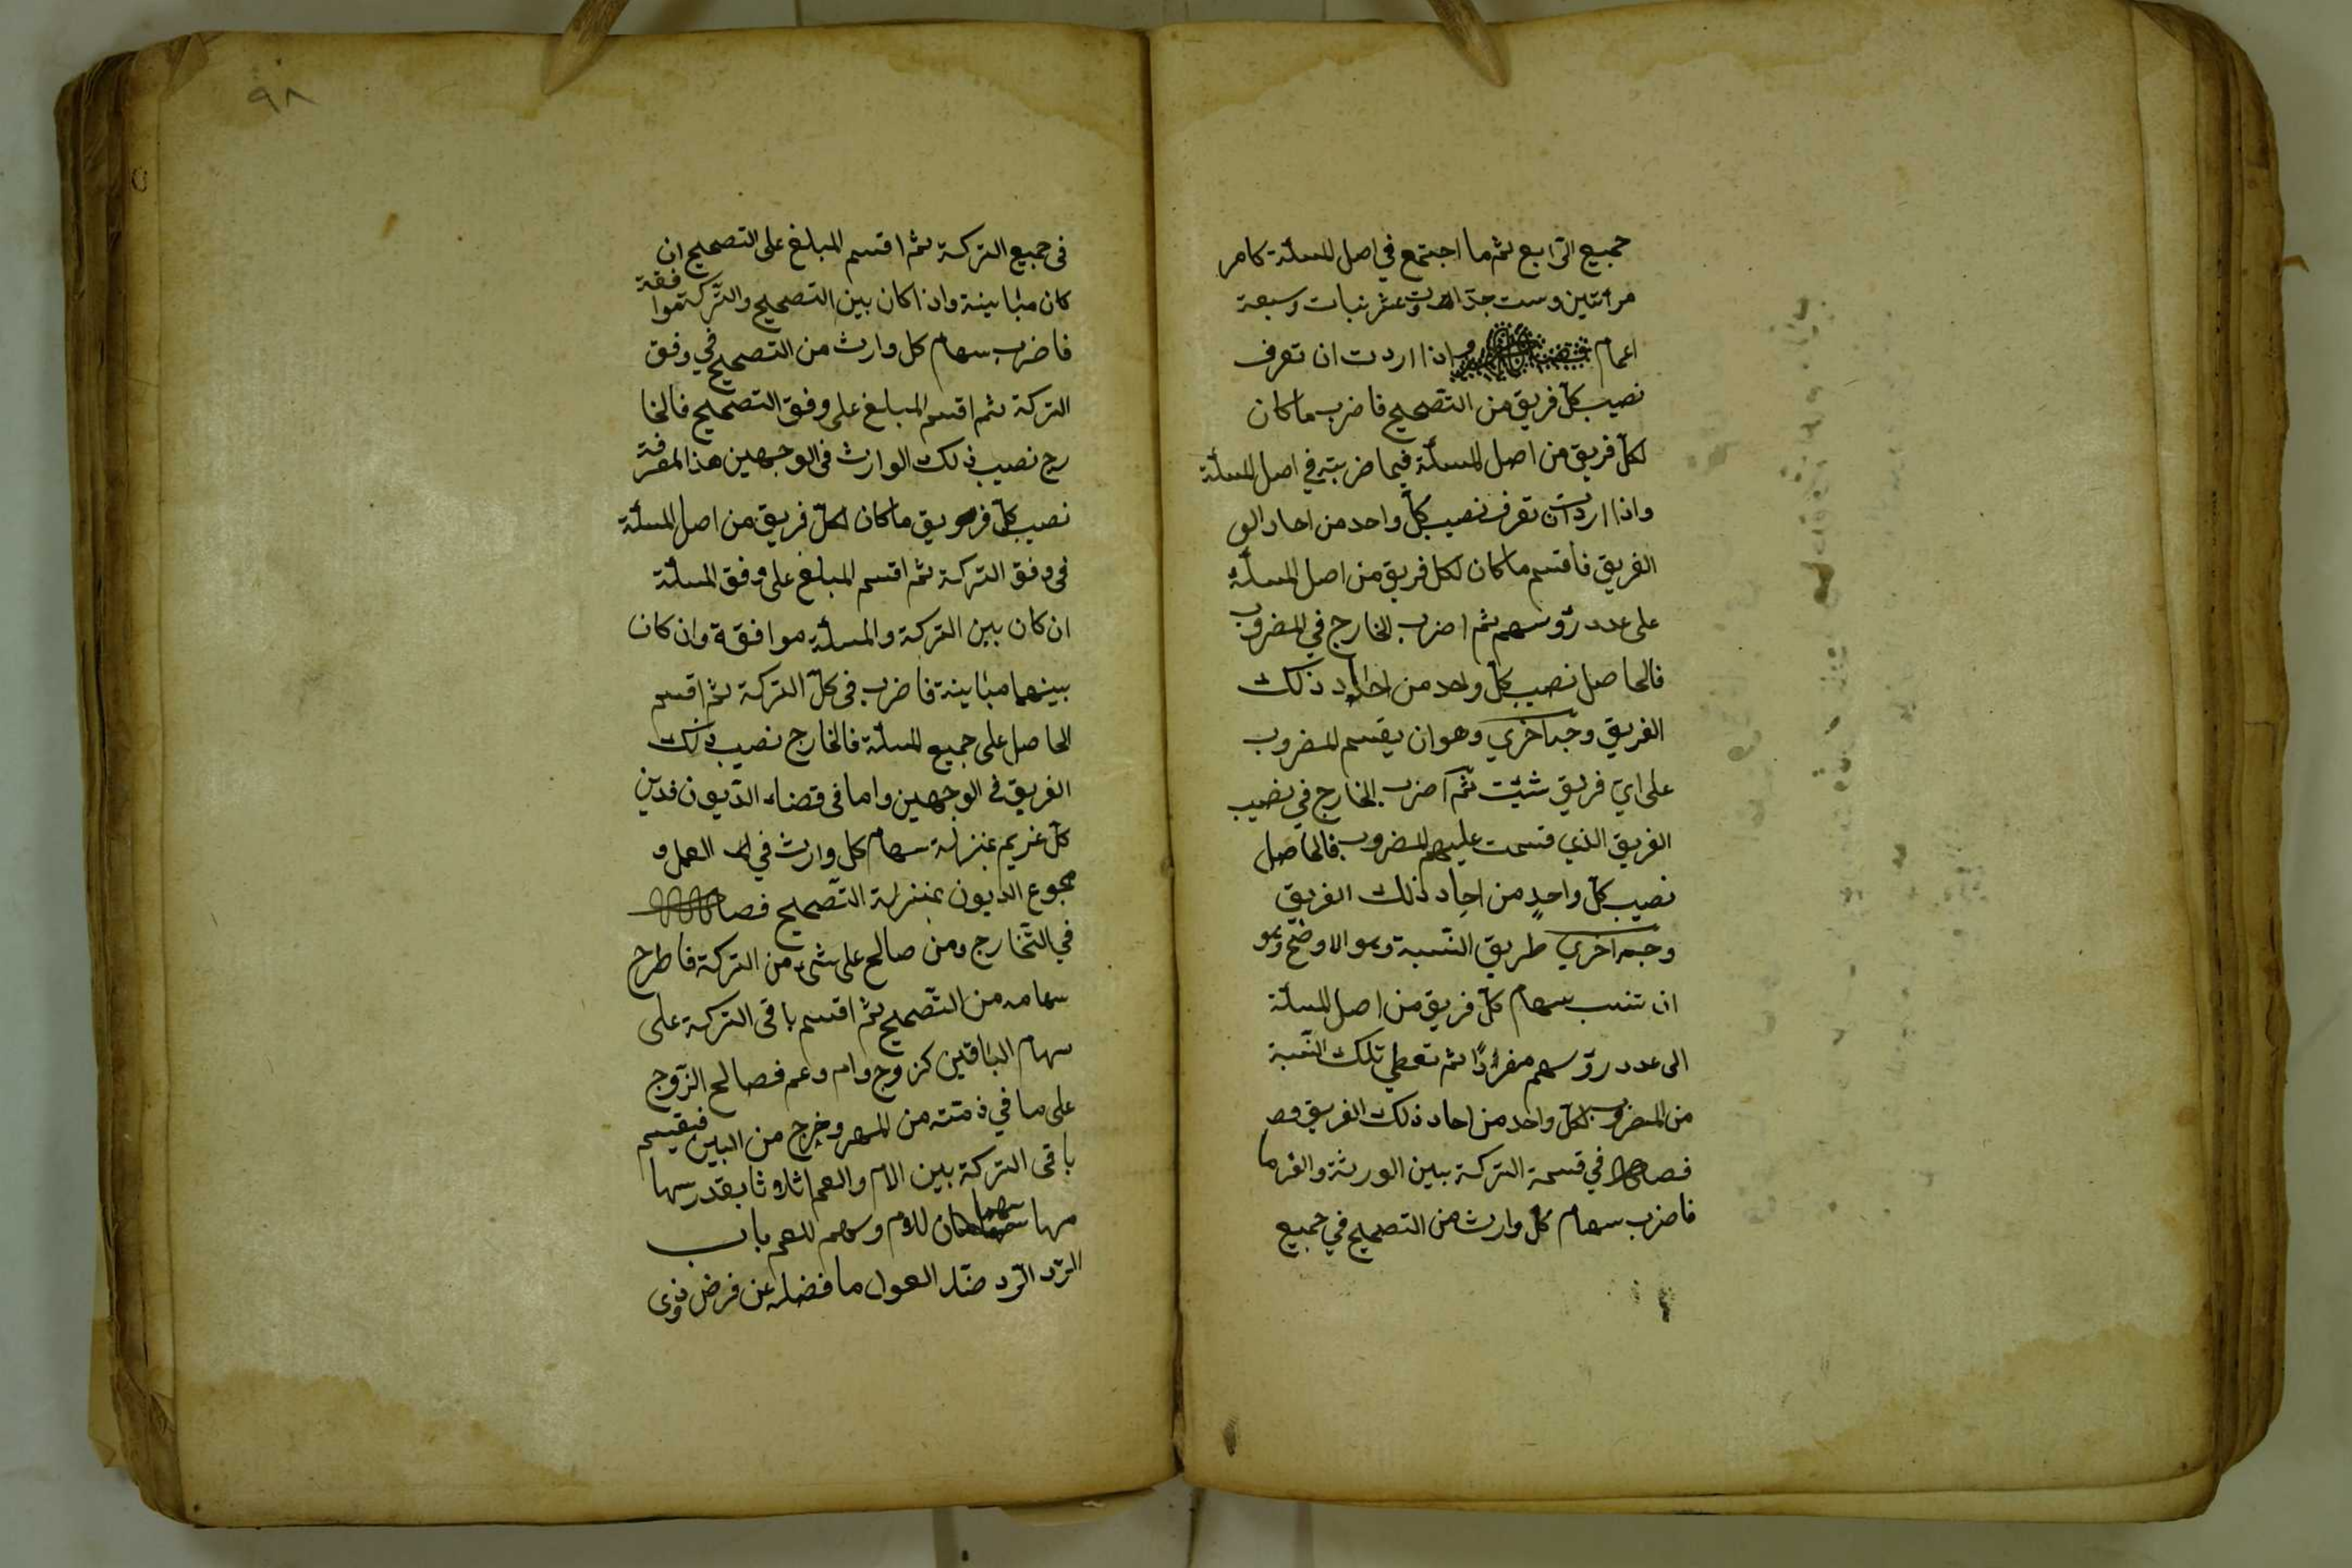 جميع الرابع ثم ما اجتمع في اصل المسئلة كامر
مرأتين وست جدات وعشر بنات وسبعة
اعمام فصل واذا اردت ان تعرف
نصيب كل فريق من التصحيح فاضرب ما كان
لكل فريق من اصل المسئلة فيما ضربته في اصل المسئلة
واذا اردت ان تعرف نصيب كل واحد من احاد الو
الفريق فاقسم ما كان لكل فريق من اصل المسئلة
على عدد رؤسهم ثم اضرب الخارج في المضروب
فالحاصل نصيب كل واحد من احاد ذلك
الفريق وجه اخرى وهو ان يقسم المضروب
على اي فريق شئت ثم اضرب الخارج في نصيب
الفريق الذي قسمت عليهم المضروب فالحاصل
نصيب كل واحد من احاد ذلك الفريق
وجه اخرى طريق النسبة وهو الاوضح وهو
ان تنسب سهام كل فريق من اصل المسئلة
الى عدد رؤسهم مفردًا ثم تعطي تلك النسبة
من المضروب لكل واحد من احاد ذلك الفريق
فصل في قسمة التركة بين الورثة والغرما
فاضرب سهام كل وارث من التصحيح في جميع
٩٨
في جميع التركة ثم اقسم المبلغ على التصحيح ان
كان مباينة واذا كان بين التصحيح والتركة موافقة
فاضرب سهام كل وارث من التصحيح في وفق
التركة ثم اقسم المبلغ على وفق التصحيح فالخا
رج نصيب ذلك الوارث في الوجهين هذا لمعرفة
نصيب كل فريق ما كان لكل فريق من اصل المسئلة
في وفق التركة ثم اقسم المبلغ على وفق المسئلة
ان كان بين التركة والمسئلة موافقة وان كان
بينهما مباينة فاضرب في كل التركة ثم اقسم
الحاصل على جميع المسئلة فالخارج نصيب ذلك
الفريق في الوجهين واما في قضاء الديون فدين
كل غريم بمنزلة سهام كل وارث في العمل و
مجموع الديون بمنزلة التصحيح فصل
في التخارج ومن صالح على شئ من التركة فاطرح
سهامه من التصحيح ثم اقسم باقى التركة على
سهام الباقين كزوج وام وعم فصالح الزوج
على ما في ذمته من المهر وخرج من البين فيقسم
باقى التركة بين الام والعم اثلاثا بقدر سها
مها سهمان للام وسهم للعم باب
الرد الرد ضد العول ما فضل عن فرض ذوى